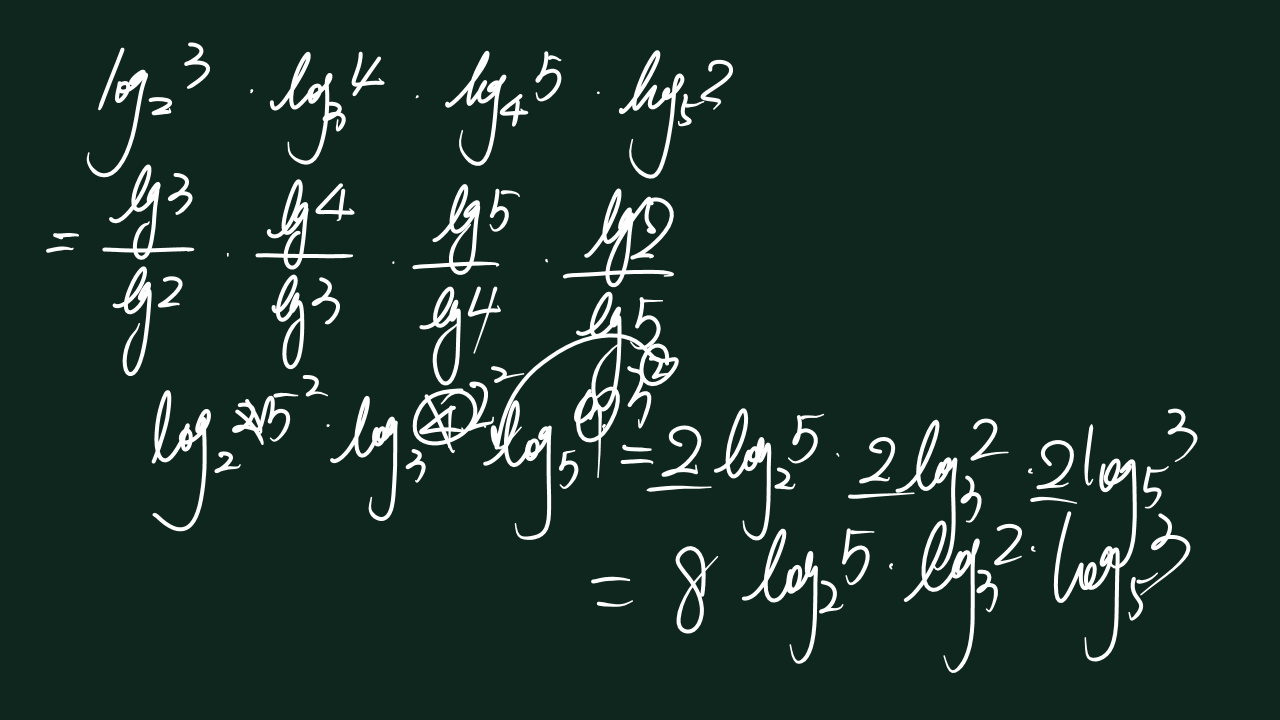 log₂3 · log₃4 · log₄5 · log₅2
= lg3/lg2 · lg4/lg3 · lg5/lg4 · lg2/lg5
log₂5² · log₃2² · log₅3² = 2log₂5 · 2log₃2 · 2log₅3
= 8 log₂5 · log₃2 · log₅3